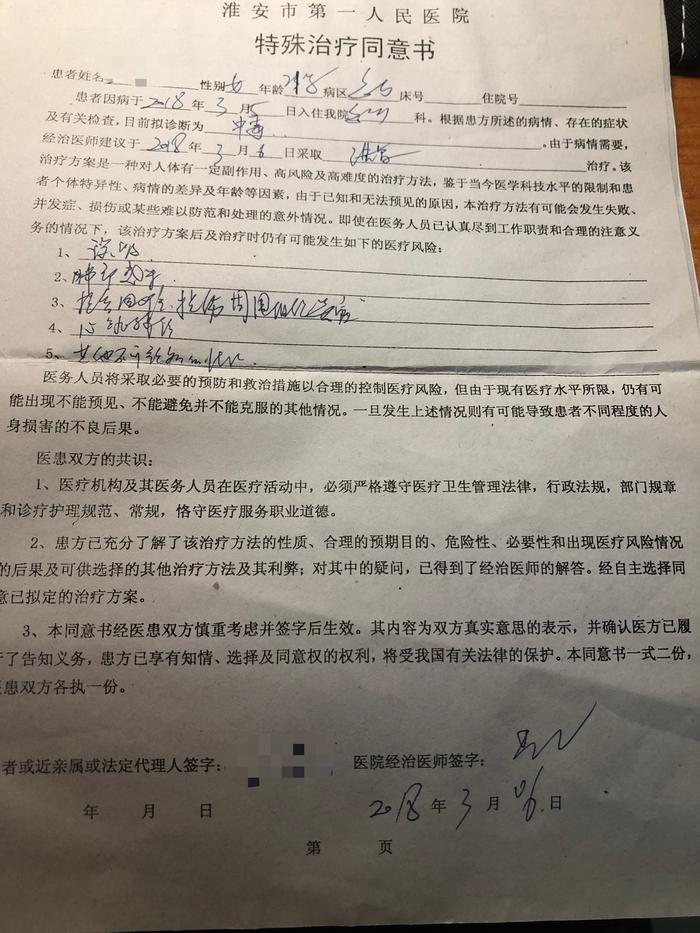 淮安市第一人民医院
特殊治疗同意书
患者姓名 性别女 年龄 病区 床号 住院号
患者因病于2018年3月 日入住我院 科。根据患方所述的病情、存在的症状
及有关检查,目前拟诊断为中毒 。由于病情需要,
经治医师建议于2018年3月6日采取洗胃 治疗。该
治疗方案是一种对人体有一定副作用、高风险及高难度的治疗方法,鉴于当今医学科技水平的限制和患
者个体特异性、病情的差异及年龄等因素,由于已知和无法预见的原因,本治疗方法有可能会发生失败、
并发症、损伤或某些难以防范和处理的意外情况。即使在医务人员已认真尽到工作职责和合理的注意义
务的情况下,该治疗方案后及治疗时仍有可能发生如下的医疗风险:
1、误吸
2、
3、
4、
5、其他不可预知的情况
医务人员将采取必要的预防和救治措施以合理的控制医疗风险,但由于现有医疗水平所限,仍有可
能出现不能预见、不能避免并不能克服的其他情况。一旦发生上述情况则有可能导致患者不同程度的人
身损害的不良后果。
医患双方的共识:
1、医疗机构及其医务人员在医疗活动中,必须严格遵守医疗卫生管理法律,行政法规,部门规章
和诊疗护理规范、常规,恪守医疗服务职业道德。
2、患方已充分了解了该治疗方法的性质、合理的预期目的、危险性、必要性和出现医疗风险情况
的后果及可供选择的其他治疗方法及其利弊;对其中的疑问,已得到了经治医师的解答。经自主选择同
意已拟定的治疗方案。
3、本同意书经医患双方慎重考虑并签字后生效。其内容为双方真实意思的表示,并确认医方已履
行了告知义务,患方已享有知情、选择及同意权的权利,将受我国有关法律的保护。本同意书一式二份,
医患双方各执一份。
者或近亲属或法定代理人签字: 医院经治医师签字:
年 月 日 2018年3月06日
第 页